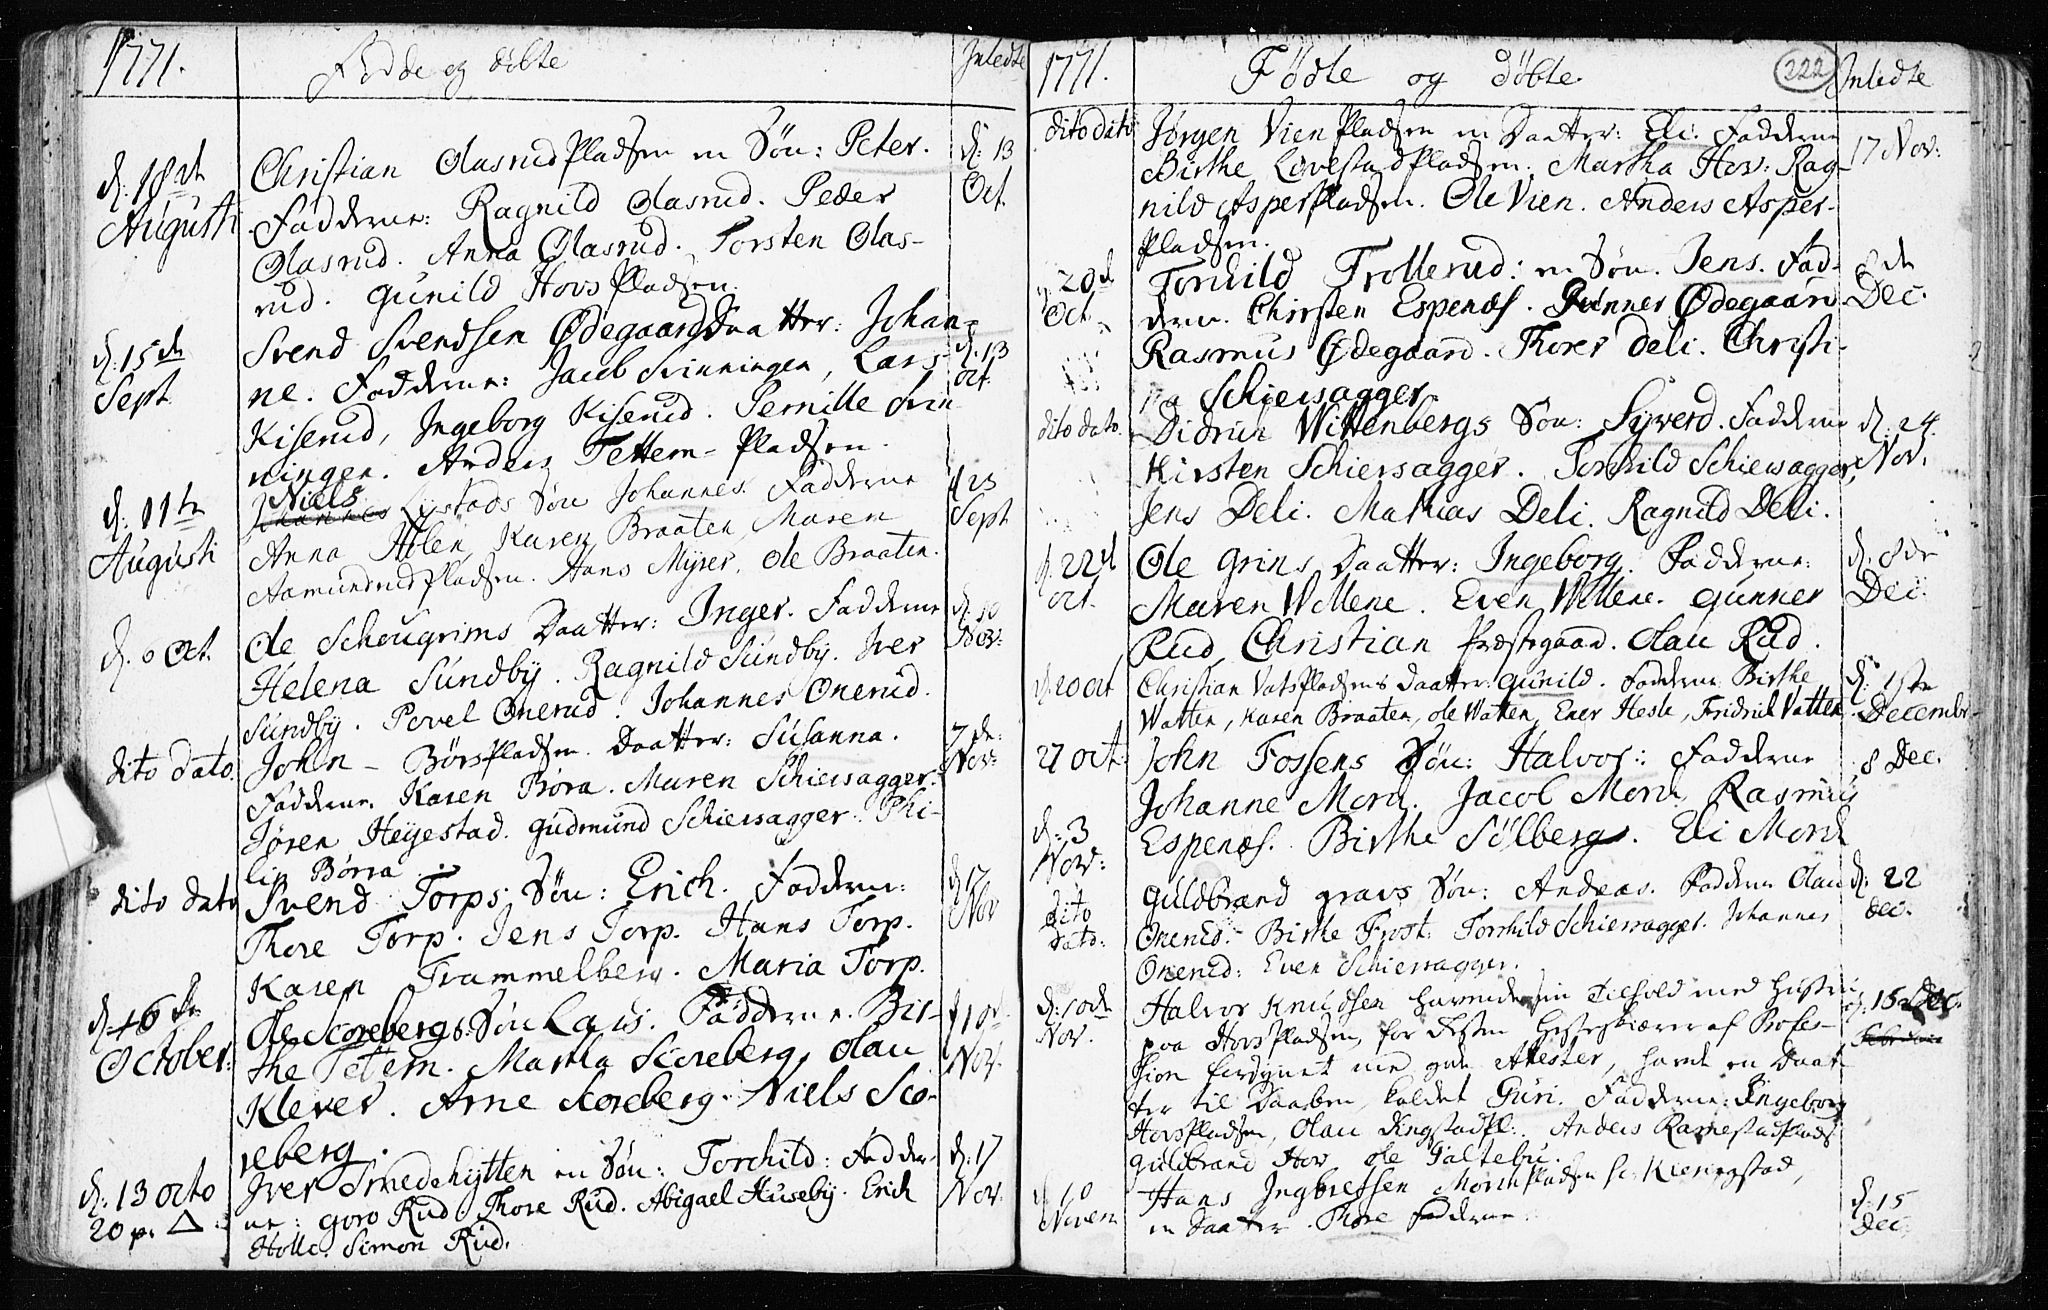 1771.
Fødde og døbte
Inledte
d: 18de
Augusti
Christian Olasrud Pladsen en Søn: Peter.
Fadderne: Ragnild Olasrud. Peder
Olasrud. Anna Olasrud. Torsten Olas-
rud. Gunild Hovs Pladsen.
d: 13
Oct.
d: 15de
Sept
Svend Svendsen Ødegaard Daatter: Johan-
ne. Fadderne: Jacob Svinningen, Lars
Kiserud, Ingeborg Kiserud. Pernille Svin
ningen. Anders Tettem-Pladsen.
d: 13
oct.
d: 11te
Augusti
Niels
Lystads Søn Johannes. Fadderne
Anna Holen, Karen Braaten, Maren
Aamundrud Pladsen. Hans Myrer, Ole Braaten.
d 23
Sept
d. 6 Oct.
Ole Schougrims Daatter: Inger. Fadderne
Helena Sundby. Ragnild Sundby. Iver
Sundby. Povel Onerud. Johannes Onerud.
d. 10
Nov:
dito dato
John - Børs Pladsen. Daatter: Susanna.
Fadderne. Karen Børa. Maren Schiersagger.
Jøren Heyestad. Gudmund Schiersagger. Phi-
lip Børra
7de:
Nov:
dito dato
Svend Torps: Søn: Erich. Fadderne:
Thore Torp. Jens Torp. Hans Torp.
Karen Trammelberg. Maria Torp.
d 17
Nov
d: 6te
October:
Ole Scorebergs Søn Lars. Fadderne. Bir-
the Tetem. Martha Scoreberg, Olau
Klever. Arne Scoreberg. Niels Sco-
reberg.
d 10de
Nov.
d: 13 octo
20 p. Δ
Iver Smedehytten en Søn: Torchild: Fadder-
ne: Goro Rud. Thore Rud. Abigael Huseby. Erich
Holle. Simon Rud.
d: 17
Nov.
1771.
Fødte og døbte.
222
Inledte
dito dato
Jørgen Vien Pladsen en Daatter: Eli. Fadderne
Birthe Lovestad Pladsen. Martha Hov: Rag-
nild Asper Pladsen. Ole Vien. Anders Asper-
Pladsen.
17 Nov:
d. 20de
Oct.
Torchild Trollerud: en Søn. Jens. Fad-
dern. Chirsten Espenæs. Gunner Ødegaard
Rasmus Ødegaard. Thorer Deli. Christi-
na Schiersagger
8de
Dec.
dito dato.
Didrich Wittenbergs Søn: Syverd. Fadderne
Kirsten Schiersagger. Torchild Schiersagger,
Jens Deli. Mathias Deli. Ragnild Deli.
d. 24.
Nov.
d. 22d
oct.
Ole Grins Daatter: Ingeborg. Fadderne:
Maren Wellene. Even Wellene. Gunner
Rud Christian Præstegaard. Olau Rud.
d. 8de
Dec.
d. 20 oct
Christian Vats Pladsens Daatter: Gunild. Fadderne Birthe
Watten, Karen Braaten, Ole Watten, Ener Hesle, Fridrich Vatten
d: 1ste
Decembr.
27 oct:
John Fossens Søn: Halvor: Fadderne
Johanne Morck. Jacob Morck, Rasmus
Espenæs. Birthe Sølberg. Eli Morck
8 Dec.
d: 3
Nov:
dito
dato:
Guldbrand gravs Søn: Andreas. Fadderne Olau
Onerud. Birthe Frost. Torchild Schiersagger. Johannes
Onerud: Even Schiersagger.
d: 22
dec.
d: 10de
Nov.
Halvor Knudsen havende sin Tilhold med Hustru
paa Hovs Pladsen, for Resten Hestegiærer af Profes-
sion forsynet med gode Attester, havde en Daat
ter til Daaben kaldet Guri. Fadderne: Ingeborg
HovsPladsen, Olau Dingstadpl:. Anders Ramestadplads
Guldbrand Hov Ole Taltebu.
d. 15 Dec.
d 10
Novem
Hans Ingbretsen Mørch Pladsen
en Daatter. Thore Fadderne:
d: 15
Dec.